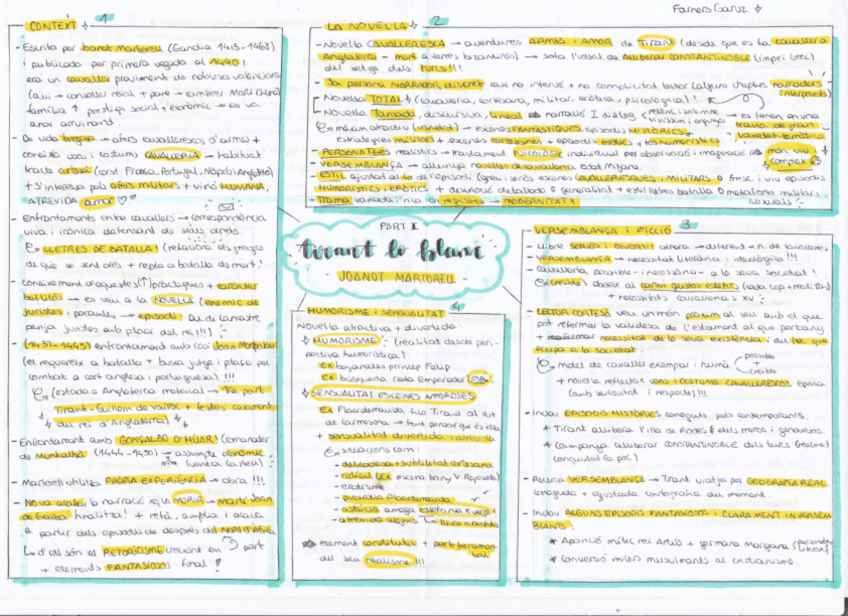 Farners Garuz
CONTEXT 1
- Escrita per Joanot Martorell (Gandia 1413-1468)
i publicada per primera vegada al 1490!
era un cavaller provinment de noblesa valenciana
família ↑ prestigi social + econòmic → es va
anar arruinant
- De vida → afers cavallerescos d'armes +
coneixia usos i costums CAVALLERIA → habitual
tracte cortesà (cort Prússia, Portugal, Nàpols i Anglaterra)
+ s'interessa pels afers militars + vinc HUMANA,
ATREVIDA amor ♡♡
- Enfrontaments entre cavallers → correspondència
viva i irònica defensant els seus drets.
LLETRES DE BATALLA! (relacions dels greuges
de què se sent ofès + repta a batalla de mort!)
→ es veu a la NOVELLA (enemic de
juristes i paraules → episodi: Duc de Lancastre
penja juristes amb plaer del rei!!!)
- (1437-1445) enfrontament amb cosí Joan Monpalau
(el requereix a batalla + busca jutge i plaça pel
combat a cort anglesa i portuguesa) !!!
(estada a Anglaterra material → 1a part
Tirant-Guillem de Vàroic + festes casament
del rei d'Anglaterra)
- Enfrontament amb GONÇALBO D'HÍJAR! (comanador
de Montalbà) (1444-1450) → assumpte econòmic
- Martorell utilitza PRÒPIA EXPERIÈNCIA → obra!!!
- Nova acaba la narració xq va MORIR → Martí Joan
de Galba finalitza! + retà, amplia i acaba
a partir dels episodis de després del Nord d'Àfrica
↳ d'ell són el RETORICISME part
+ elements FANTASIOSOS final!
LA NOVELLA 2
- Novella CAVALLERESCA → aventures ARMES i AMOR de Tirant (desde que es fa cavaller a
Anglaterra - mort a terres bizantines) → sota l'ideal de ALLIBERAR CONSTANTINOBLE (imperi grec)
del setge dels turcs!!!
- 3a persona NARRADOR, discret casi no intervé + no complicitat lector (alguns chapters narradors
interposats)
- Novella TOTAL (cavalleresca, cortesana, militar, eròtica, psicològica)!!
- Novella Tancada, discursiva, lineal → narració i diàleg
màxim atractiu (varietat) → escenes FANTÀSTIQUES, episodis HISTÒRICS +
estratègies militars + escenes cortesanes + episodis eròtics + los humorístics
varietat temàtica
- PERSONATGES realístics → tractament PSICOLÒGIC individual per observació i imaginació → món viu
complex
- VERSEMBLANÇA → allunyaja novelles de cavalleria edat mitjana
- ESTIL ajustat al to de l'episodi (greu i seriós escenes CAVALLERESQUES i MILITARS o fresc i viu episodis
HUMORÍSTICS i ERÒTICS + descripció detallada o generalitat + estil lletres batalla o metàfores militars
sexuals
- Trama variada i rica en registres → MODERNITAT!
PART I
tirant lo blanc
- JOANOT MARTORELL -
HUMORISME i SENSUALITAT 4
Novella atractiva + divertida
HUMORISME (realitat desde pers-
pectiva humorística)
Ex bajanades príncep Felip
Ex búsqueda rata Emperador
SENSUALITAT ESCENES AMOROSES
Ex Plaerdemavida fica Tirant al llit
de Carmesina → fent pensar que és ella
+ sensualitat divertida i atrevida
Situacions són:
- delicadesa i subtilitat cortesana
- ridícul (ex escena bany V. Reposada)
- erotisme
- picardia Plaerdemavida
- astúcia amaga estefania
- atreviment
⇒ element constitutiu + part fonamen-
tal
del seu realisme!!!
VERSEMBLANÇA i FICCIÓ 3
- Llibre seriós i divertit alhora → diferent a n. de cavalleries
- VERSEMBLANÇA → necessitat literària i ideològica!!!
- cavalleria possible - i necessària - a la seva societat!
(creïble) obeeix al canvi gustos estètic
+ necessitats cavalleria s XV
- LECTOR CORTESÀ veu un món pròxim al seu amb el que
pot refermar la validesa de l'estament al que pertany
+ reafirmar necessitat de la seva existència i del lloc que
ocupa a la societat.
model de cavaller exemplar i humà possible
+
creïble
+ novella reflecteix usos + costums CAVALLERESCS època
(amb seriositat i respecte)!!!
- Inclou EPISODIS HISTÒRICS coneguts pels contemporanis.
★ Tirant allibera l'illa de Rodes dels moros i genovesos.
★ Campanya alliberar CONSTANTINOBLE dels turcs
conquistada poc)
- Recurs VERSEMBLANÇA → Tirant viatja per GEOGRAFIA REAL
coneguda + ajustada cartografia del moment.
- Inclou ALGUNS EPISODIS FANTASIOSOS i CLARAMENT INVERSEM-
BLANTS.
★ Aparició mític rei Artús + germana Morgana
★ Conversió milers musulmans al cristianisme.